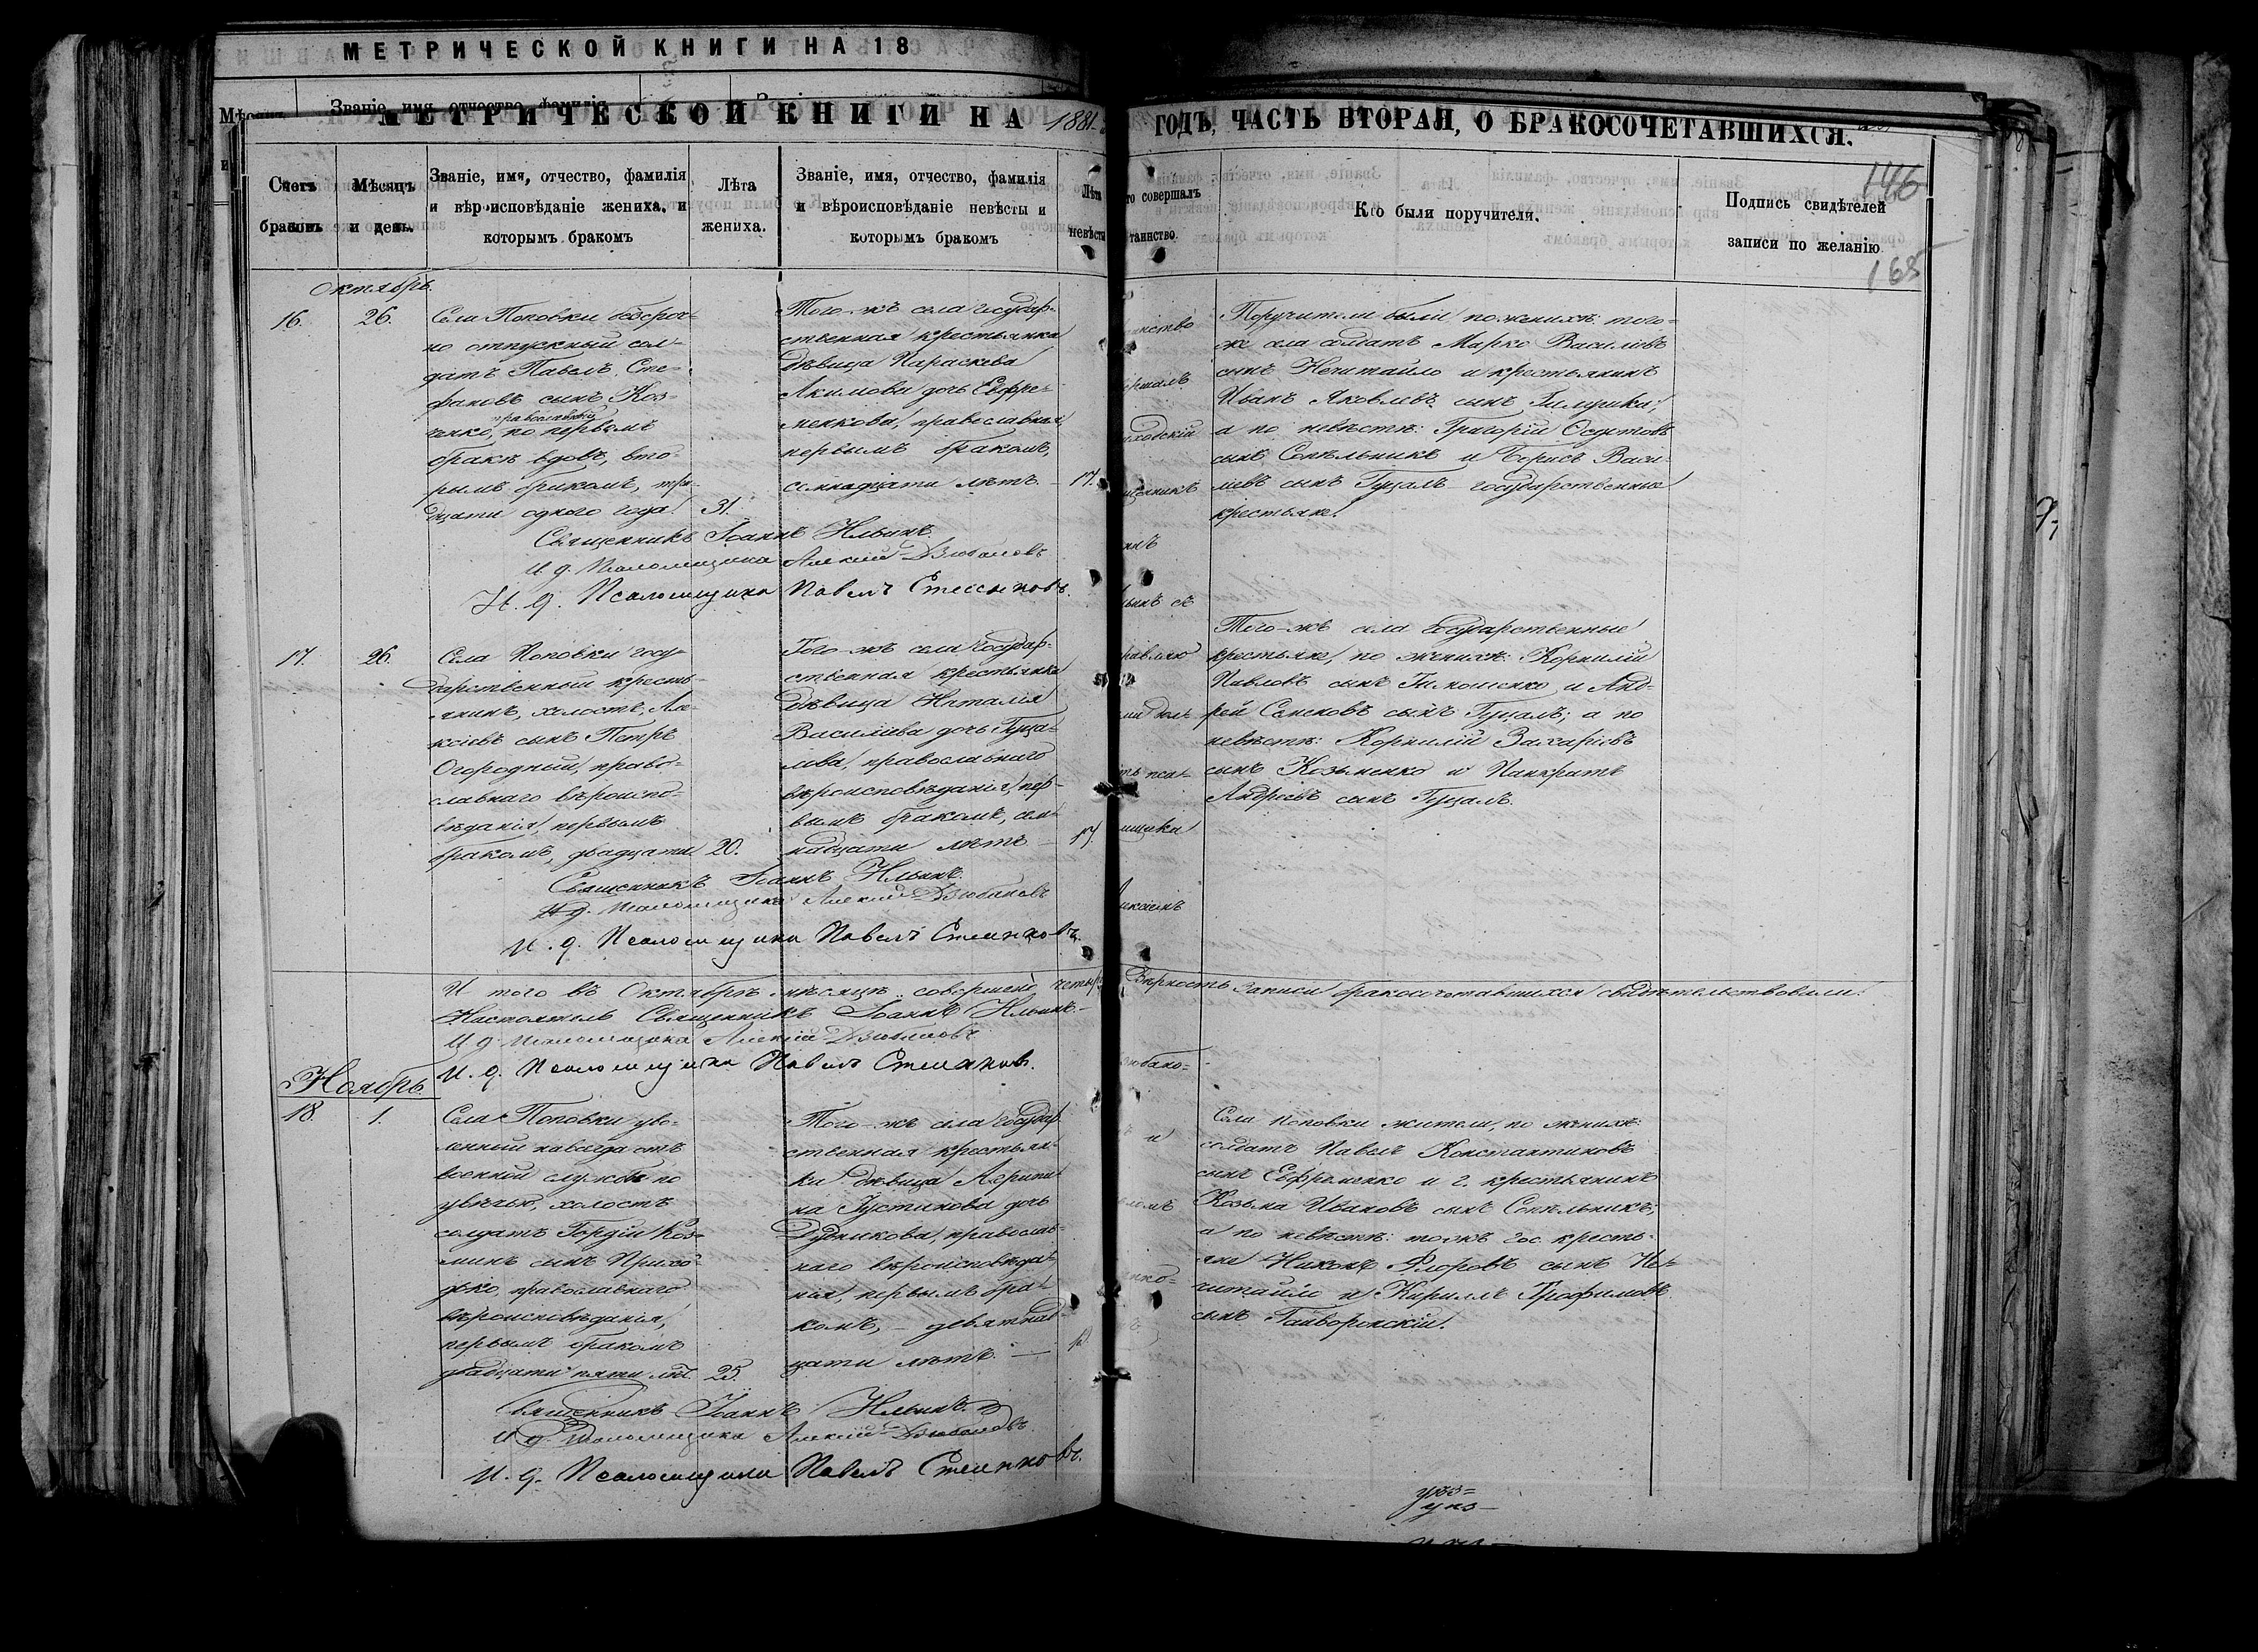 МЕТРИЧЕСКОЙ КНИГИ НА 18
Званіе, имя, отчество, фамилія
МЕТРИЧЕСКОЙ КНИГИ НА 1881
ГОДЪ, ЧАСТЬ ВТОРАЯ, О БРАКОСОЧЕТАВШИХСЯ.
146
165
Счетъ браковъ
Мѣсяцъ и день.
Званіе, имя, отчество, фамилія
и вѣроисповѣданіе жениха, и
которымъ бракомъ
Лѣта
жениха.
Званіе, имя, отчество, фамилія
и вѣроисповѣданіе невѣсты и
которымъ бракомъ
Лѣта
невѣсты
то совершалъ
таинство
Кто были поручители.
Подпись свидѣтелей
записи по желанію
Октябрь.
16.
26.
Села Поповки безсроч-
но отпускный сол-
датъ Павелъ Сте-
фановъ сынъ Коз-
православный
ченко, по первымъ
бракѣ вдовъ, вто-
рымъ бракомъ, три-
дцати одного года.
31.
Того-жъ села государ-
ственная крестьянка
дѣвица Параскева
Акимова дочь Ефре-
менкова, православная,
первымъ бракомъ,
семнадцати лѣтъ. –
17.
Поручители были по женихѣ: того-
же села солдатъ Марко Васильевъ
сынъ Нечитайло и крестьянинъ
Иванъ Яковлевъ сынъ
а по невѣстѣ: Григорій Осиповъ
сынъ Сопѣльникъ и Борисъ Васи-
льевъ сынъ Гуцалъ государственные
крестьяне.
Священникъ Іоаннъ Ильинъ.
И. д. Псаломщика Алексій Дзюбановъ
И. д. Псаломщика Павелъ
17.
26.
Села Поповки госу-
дарственный кресть-
янинъ, холостъ, Ле-
ксіевъ сынъ Петръ
Огородный, право-
славнаго вѣроиспо-
вѣданія, первымъ
бракомъ, двадцати
20.
Того-жъ села государ-
ственная крестьянка
дѣвица Наталія
Васильева дочь Гуца-
лова, православнаго
вѣроисповѣданія, пер-
вымъ бракомъ, сем-
надцати лѣтъ –
17.
Того-жъ села Государственные
крестьяне, по женихѣ: Корнилій
Павловъ сынъ Тимошенко и Анд-
рей Семеновъ сынъ Гуцалъ; а по
невѣстѣ: Корнилій Захаріевъ
сынъ Козьменко и Панкратъ
Андреевъ сынъ Гуцалъ.
Священникъ Іоаннъ Ильинъ.
И. д. Псаломщика Алексій Дзюбановъ
И. д. Псаломщика Павелъ
И того въ Октябрѣ мѣсяцѣ совершено четыр
Вѣрность записи бракосочетавшихся свидѣтельствовали:
Настоятель Священникъ Іоаннъ Ильинъ. –
И. д. Псаломщика Алексій Дзюбановъ
И. д. Псаломщика Павелъ
Ноябрь.
18.
1.
Села Поповки уво-
ленный навсегда отъ
военной службы по
увѣчью, холостъ
солдатъ Гордій Коз-
минъ сынъ Прихо-
дько, православнаго
вѣроисповѣданія,
первымъ бракомъ
двадцати пяти лѣт.
25.
Того-жъ села государ-
ственная крестьян-
ка дѣвица Агрипи-
на Іустинова дочь
Дудникова, православ-
наго вѣроисповѣда-
нія, первымъ бра-
комъ, – девятнад-
цати лѣтъ. –
Села Поповки жители, по женихѣ:
солдатъ Павелъ Константиновъ
сынъ Ефременко и г. крестьянинъ
Козьма Ивановъ сынъ Сопѣльникъ;
а по невѣстѣ: тожъ гос. кресть-
яне Никонъ Флоровъ сынъ Не-
читайло и Кириллъ Трофимовъ
сынъ Гайворонскій.
Священникъ Іоаннъ Ильинъ.
И. д. Псаломщика Алексій Дзюбановъ
И. д. Псаломщика Павелъ